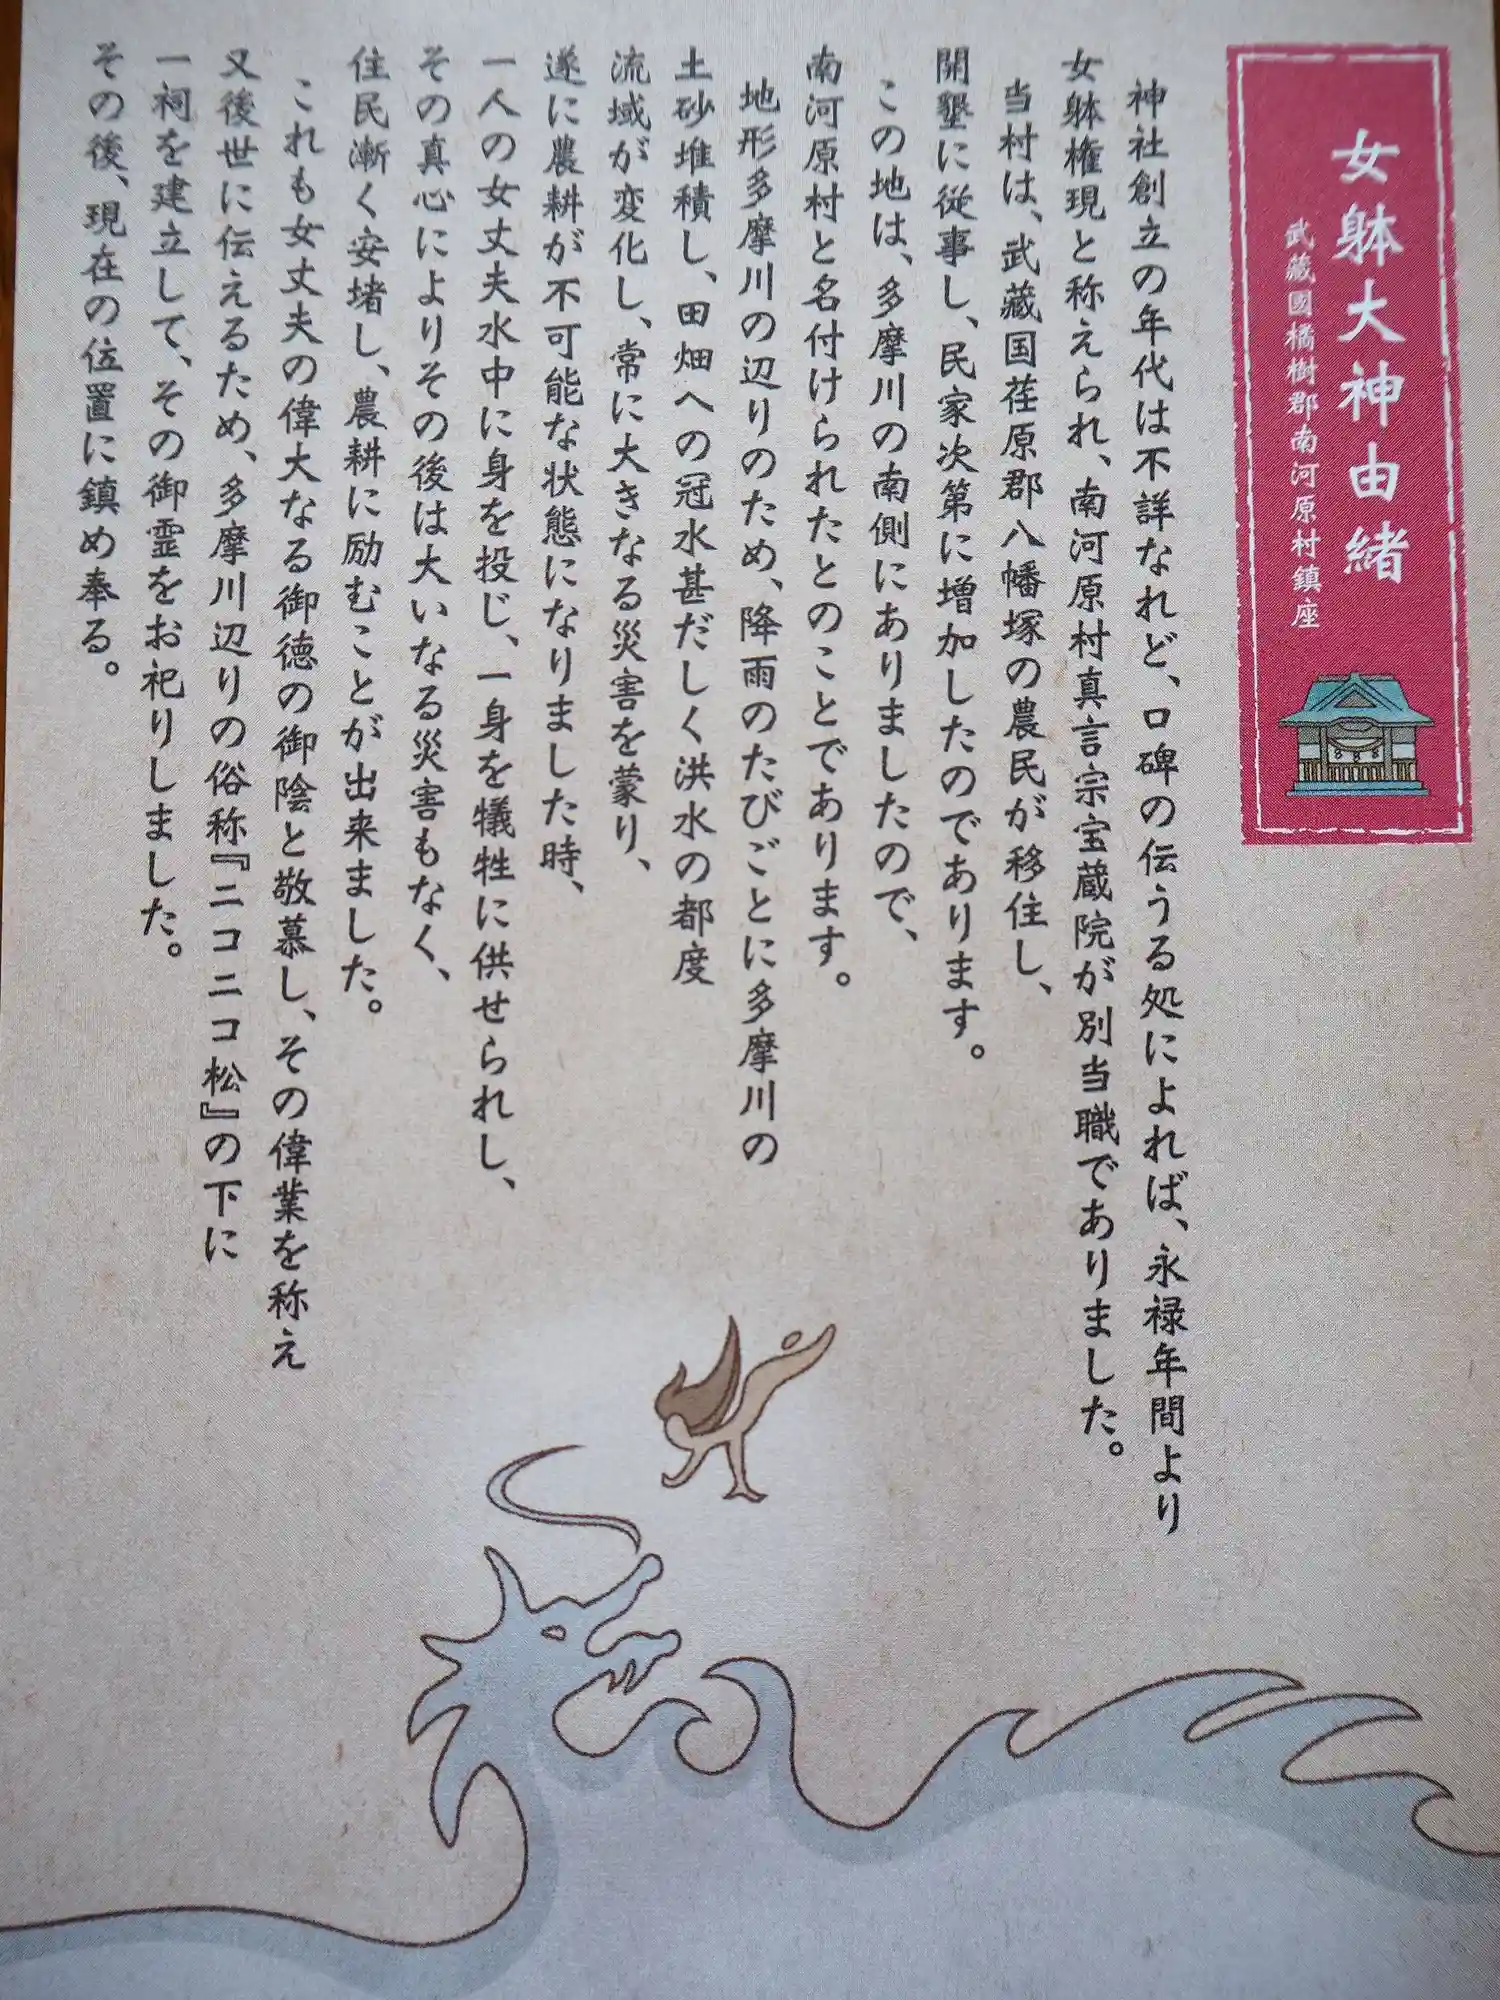 女躰大神由緒
武蔵國橘樹郡南河原村鎮座
神社創立の年代は不詳なれど、口碑の伝うる処によれば、永禄年間より
女躰権現と称えられ、南河原村真言宗宝蔵院が別当職でありました。
当村は、武蔵国荏原郡八幡塚の農民が移住し、
開墾に従事し、民家次第に増加したのであります。
この地は、多摩川の南側にありましたので、
南河原村と名付けられたとのことであります。
地形多摩川の辺りのため、降雨のたびごとに多摩川の
土砂堆積し、田畑への冠水甚だしく洪水の都度
流域が変化し、常に大きなる災害を蒙り、
遂に農耕が不可能な状態になりました時、
一人の女丈夫水中に身を投じ、一身を犠牲に供せられし、
その真心によりその後は大いなる災害もなく、
住民漸く安堵し、農耕に励むことが出来ました。
これも女丈夫の偉大なる御徳の御陰と敬慕し、その偉業を称え
又後世に伝えるため、多摩川辺りの俗称『ニコニコ松』の下に
一祠を建立して、その御霊をお祀りしました。
その後、現在の位置に鎮め奉る。